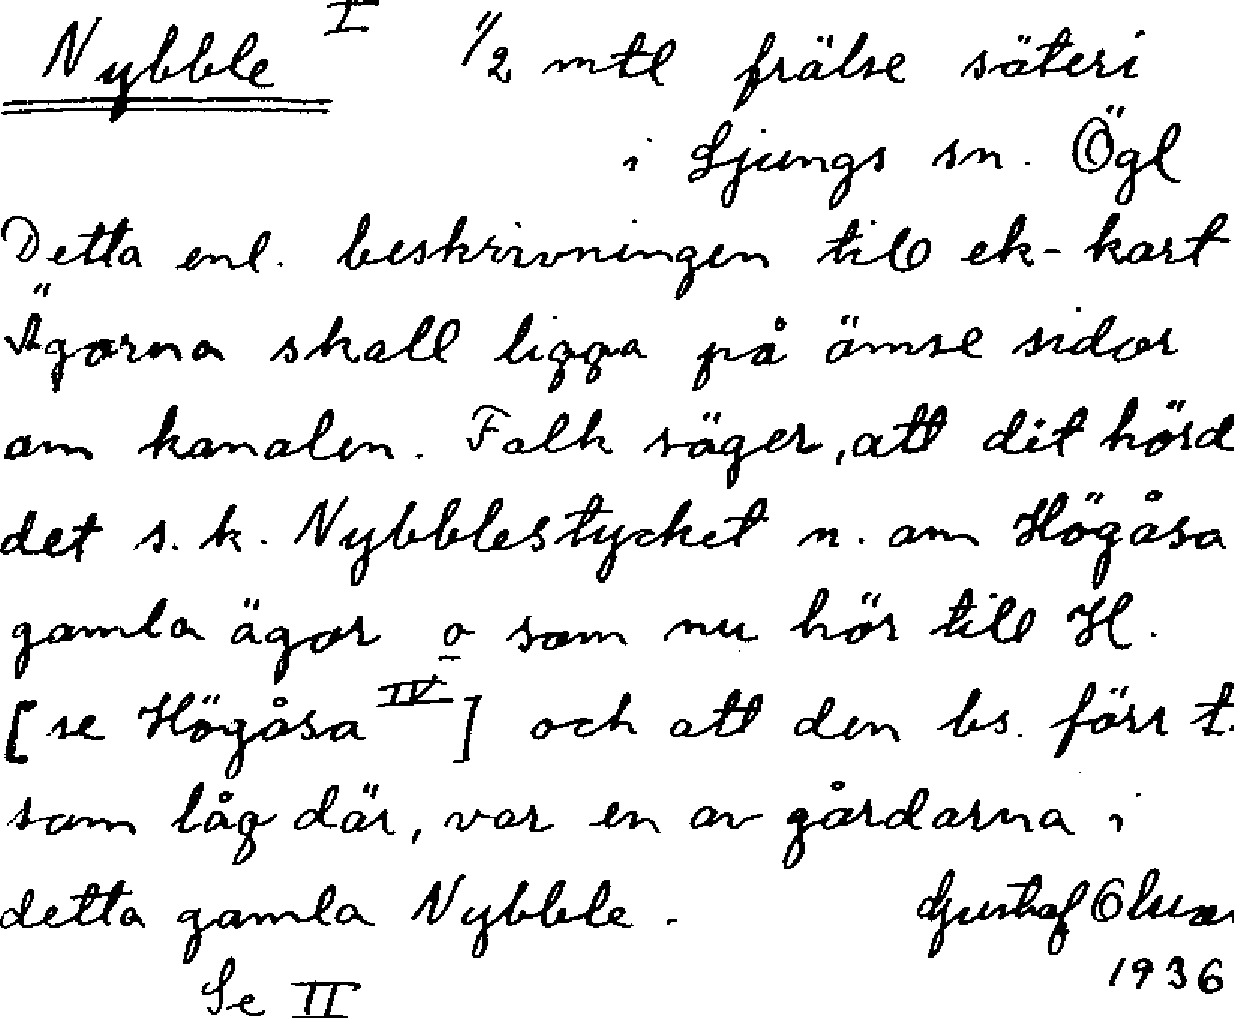 Nybble I 1/2 mtl frälse säteri
i Ljungs sn. Ögl
Detta enl. beskrivningen till ek-kart
Ägorna skall ligga på ömse sidor
om kanalen. Folk säger, att dit hörd
det s.k. Nybblestycket n. om Högåsa
gamla ägor o som nu hör till H.
[se Högåsa IV] och att den bs. förr t.
som låg där, var en av gårdarna i
detta gamla Nybble.
Gustaf
1936
Se II